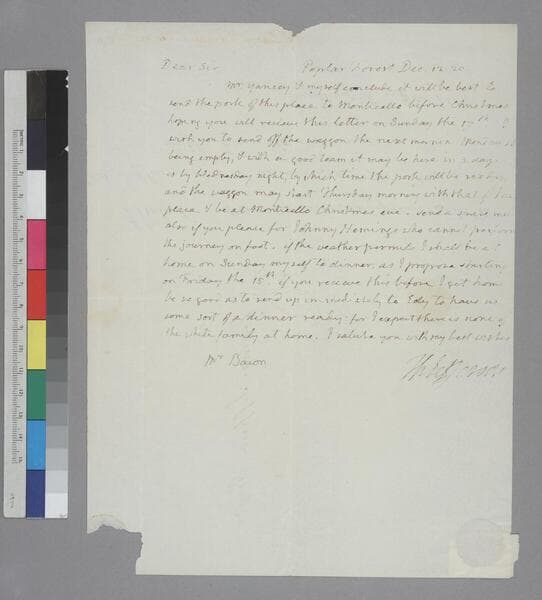 Dear Sir Poplar Forest Dec. 12. 20
Mr. Yancey & myself conclude it will be best to
send the pork of this place to Monticello before Christmas
hoping you will recieve this letter on Sunday the 17th I
wish you to send off the waggon the next mornin
being empty, & with a good team it may be here in 3 days
is by Wednesday night, by which time the pork will be ready
and the waggon may start Thursday morning with that of
place & be at Monticello Christmas eve. send a mule
also if you please for Johnny Hemings who cannot perform
the journey on foot. if the weather permits I shall be at
home on Sunday myself to dinner, as I propose starting
on Friday the 15th if you recieve this before I get home
be so good as to send up immediately to Edy to have us
some sort of a dinner ready: for I expect there is none of
the white family at home. I salute you with my best wishes
Mr Bacon Th Jefferson